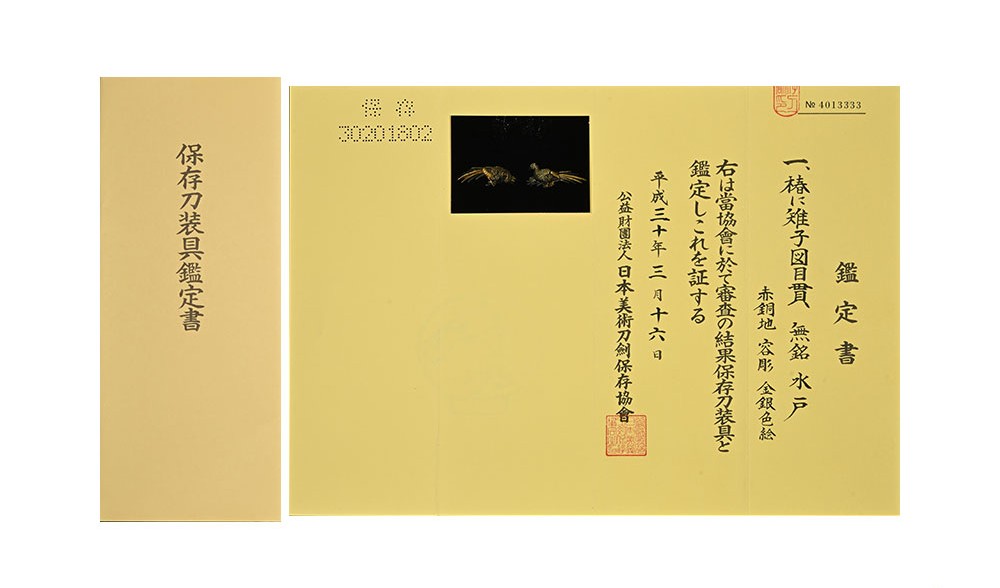 保存刀装具鑑定書
№ 4013333
鑑定書
一、椿に雉子図目貫 無銘 水戸
赤銅地 容彫 金銀色絵
右は當協會に於て審査の結果保存刀装具と
鑑定しこれを証する
平成三十年三月十六日
公益財團法人 日本美術刀劍保存協會
保存
30201802